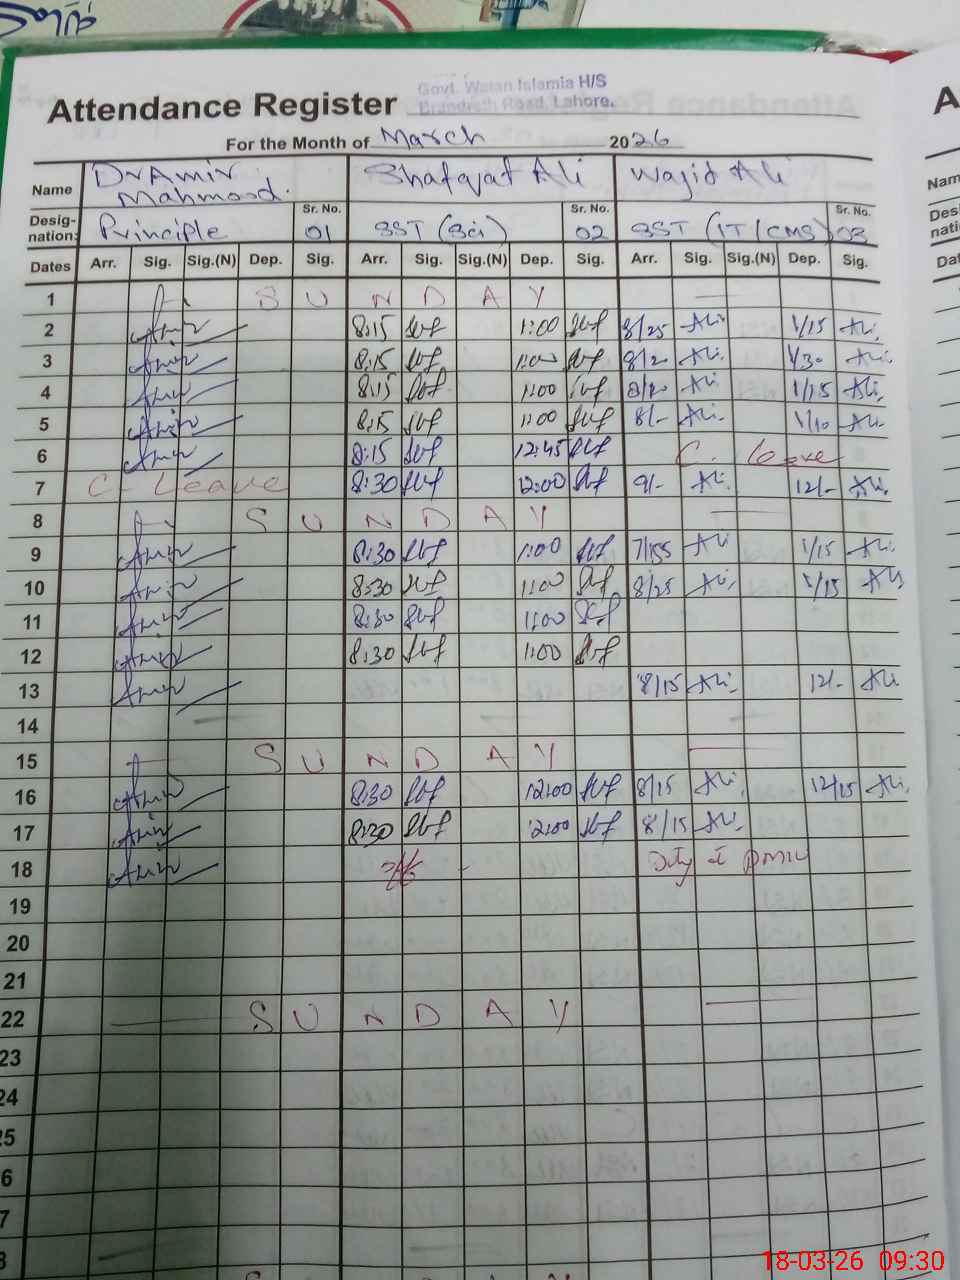 Govt. Watan Islamia H/S
Attendance Register Brandreth Road, Lahore.
For the Month of March 2026
Name Dr Amir Mahmood. Shafqat Ali Wajid Ali
Desig-nation: Principle Sr. No. 01 SST (Sci) Sr. No. 02 SST (IT/CMS) Sr. No. 03
Dates Arr. Sig. Sig.(N) Dep. Sig. Arr. Sig. Sig.(N) Dep. Sig. Arr. Sig. Sig.(N) Dep. Sig.
1 S U N D A Y
2 Amir 8:15 1:00 8/25 Ali 1/15 Ali
3 Amir 8:15 1:00 8/20 Ali 1/30 Ali
4 Amir 8:15 1:00 8/20 Ali 1/15 Ali
5 Amir 8:15 1:00 8/- Ali 1/10 Ali
6 Amir 8:15 12:45 C. leave
7 C- Leave 8:30 12:00 9/- Ali 12/- Ali
8 S U N D A Y
9 Amir 8:30 1:00 7/55 Ali 1/15 Ali
10 Amir 8:30 1:00 8/25 Ali 1/15 Ali
11 Amir 8:30 1:00
12 Amir 8:30 1:00
13 Amir 8/15 Ali 12/- Ali
14
15 S U N D A Y
16 Amir 8:30 12:00 8/15 Ali 12/15 Ali
17 Amir 8:30 12:00 8/15 Ali
18 Amir
19
20
21
22 S U N D A Y
23
24
25
6
7
8
18-03-26 09:30